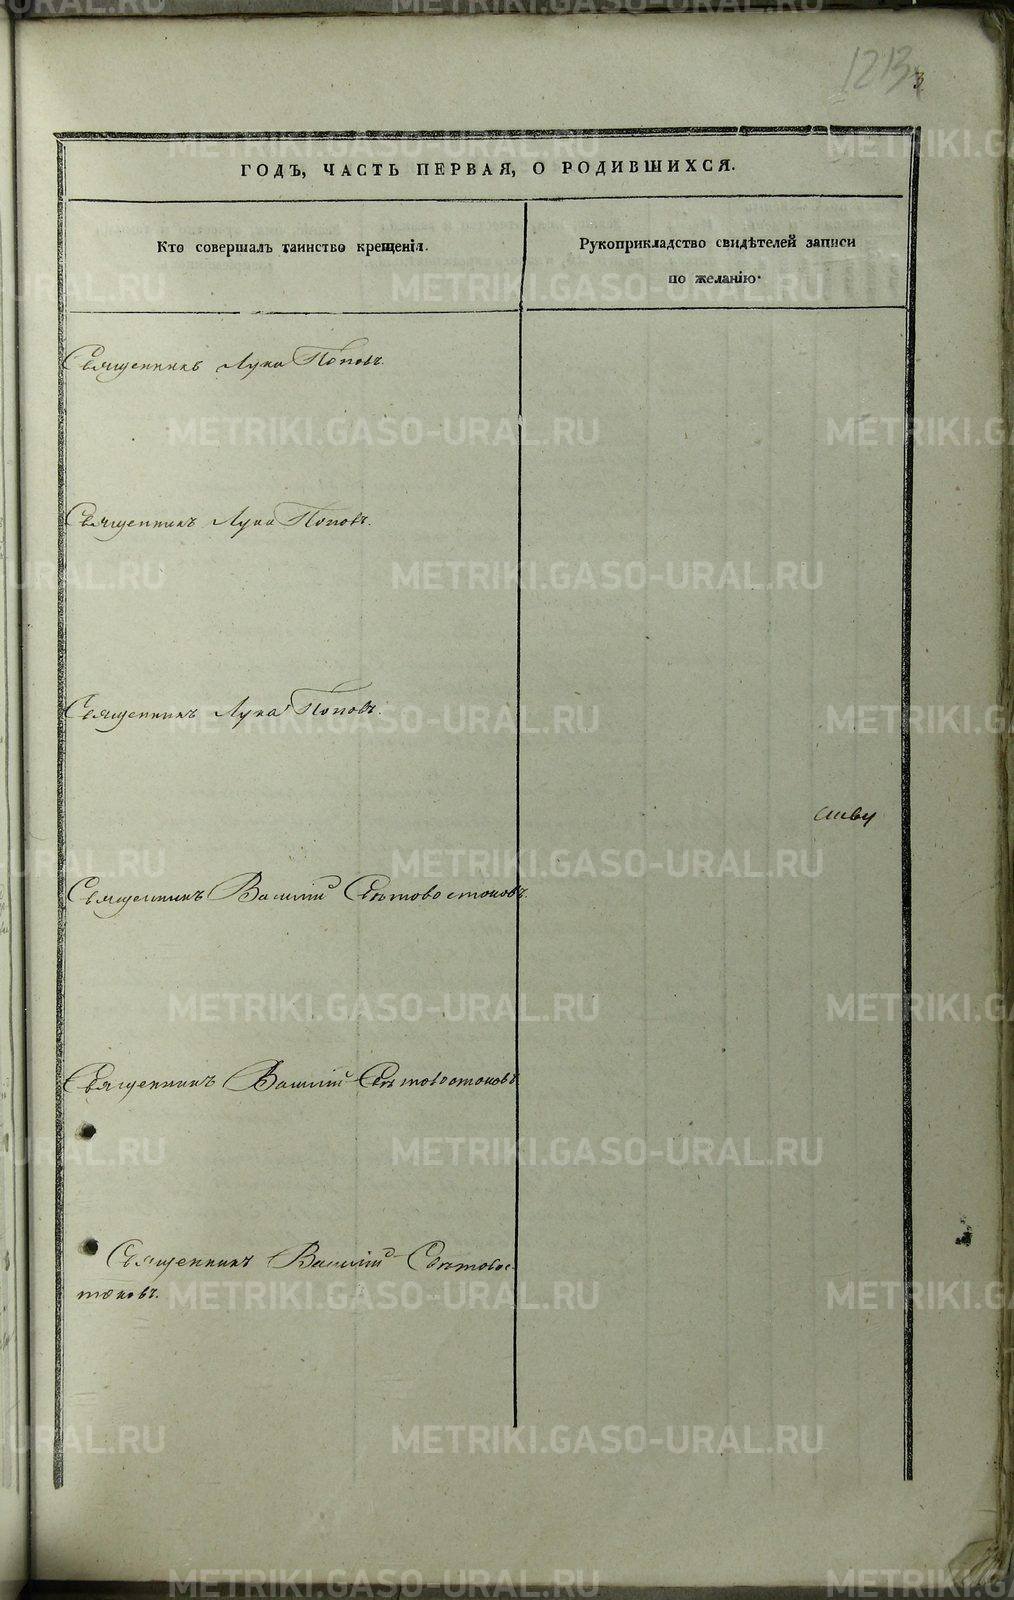 1213
3
ГОДЪ, ЧАСТЬ ПЕРВАЯ, О РОДИВШИХСЯ.
Кто совершалъ таинство крещенія.
Рукоприкладство свидѣтелей записи
по желанію.
Священникъ Лука Поповъ.
Священникъ Лука Поповъ.
Священникъ Лука Поповъ.
Священникъ Василій Свѣтовостоковъ.
Священникъ Василій Свѣтовостоковъ
Священникъ Василій Свѣтовос-
токовъ.
METRIKI.GASO-URAL.RU